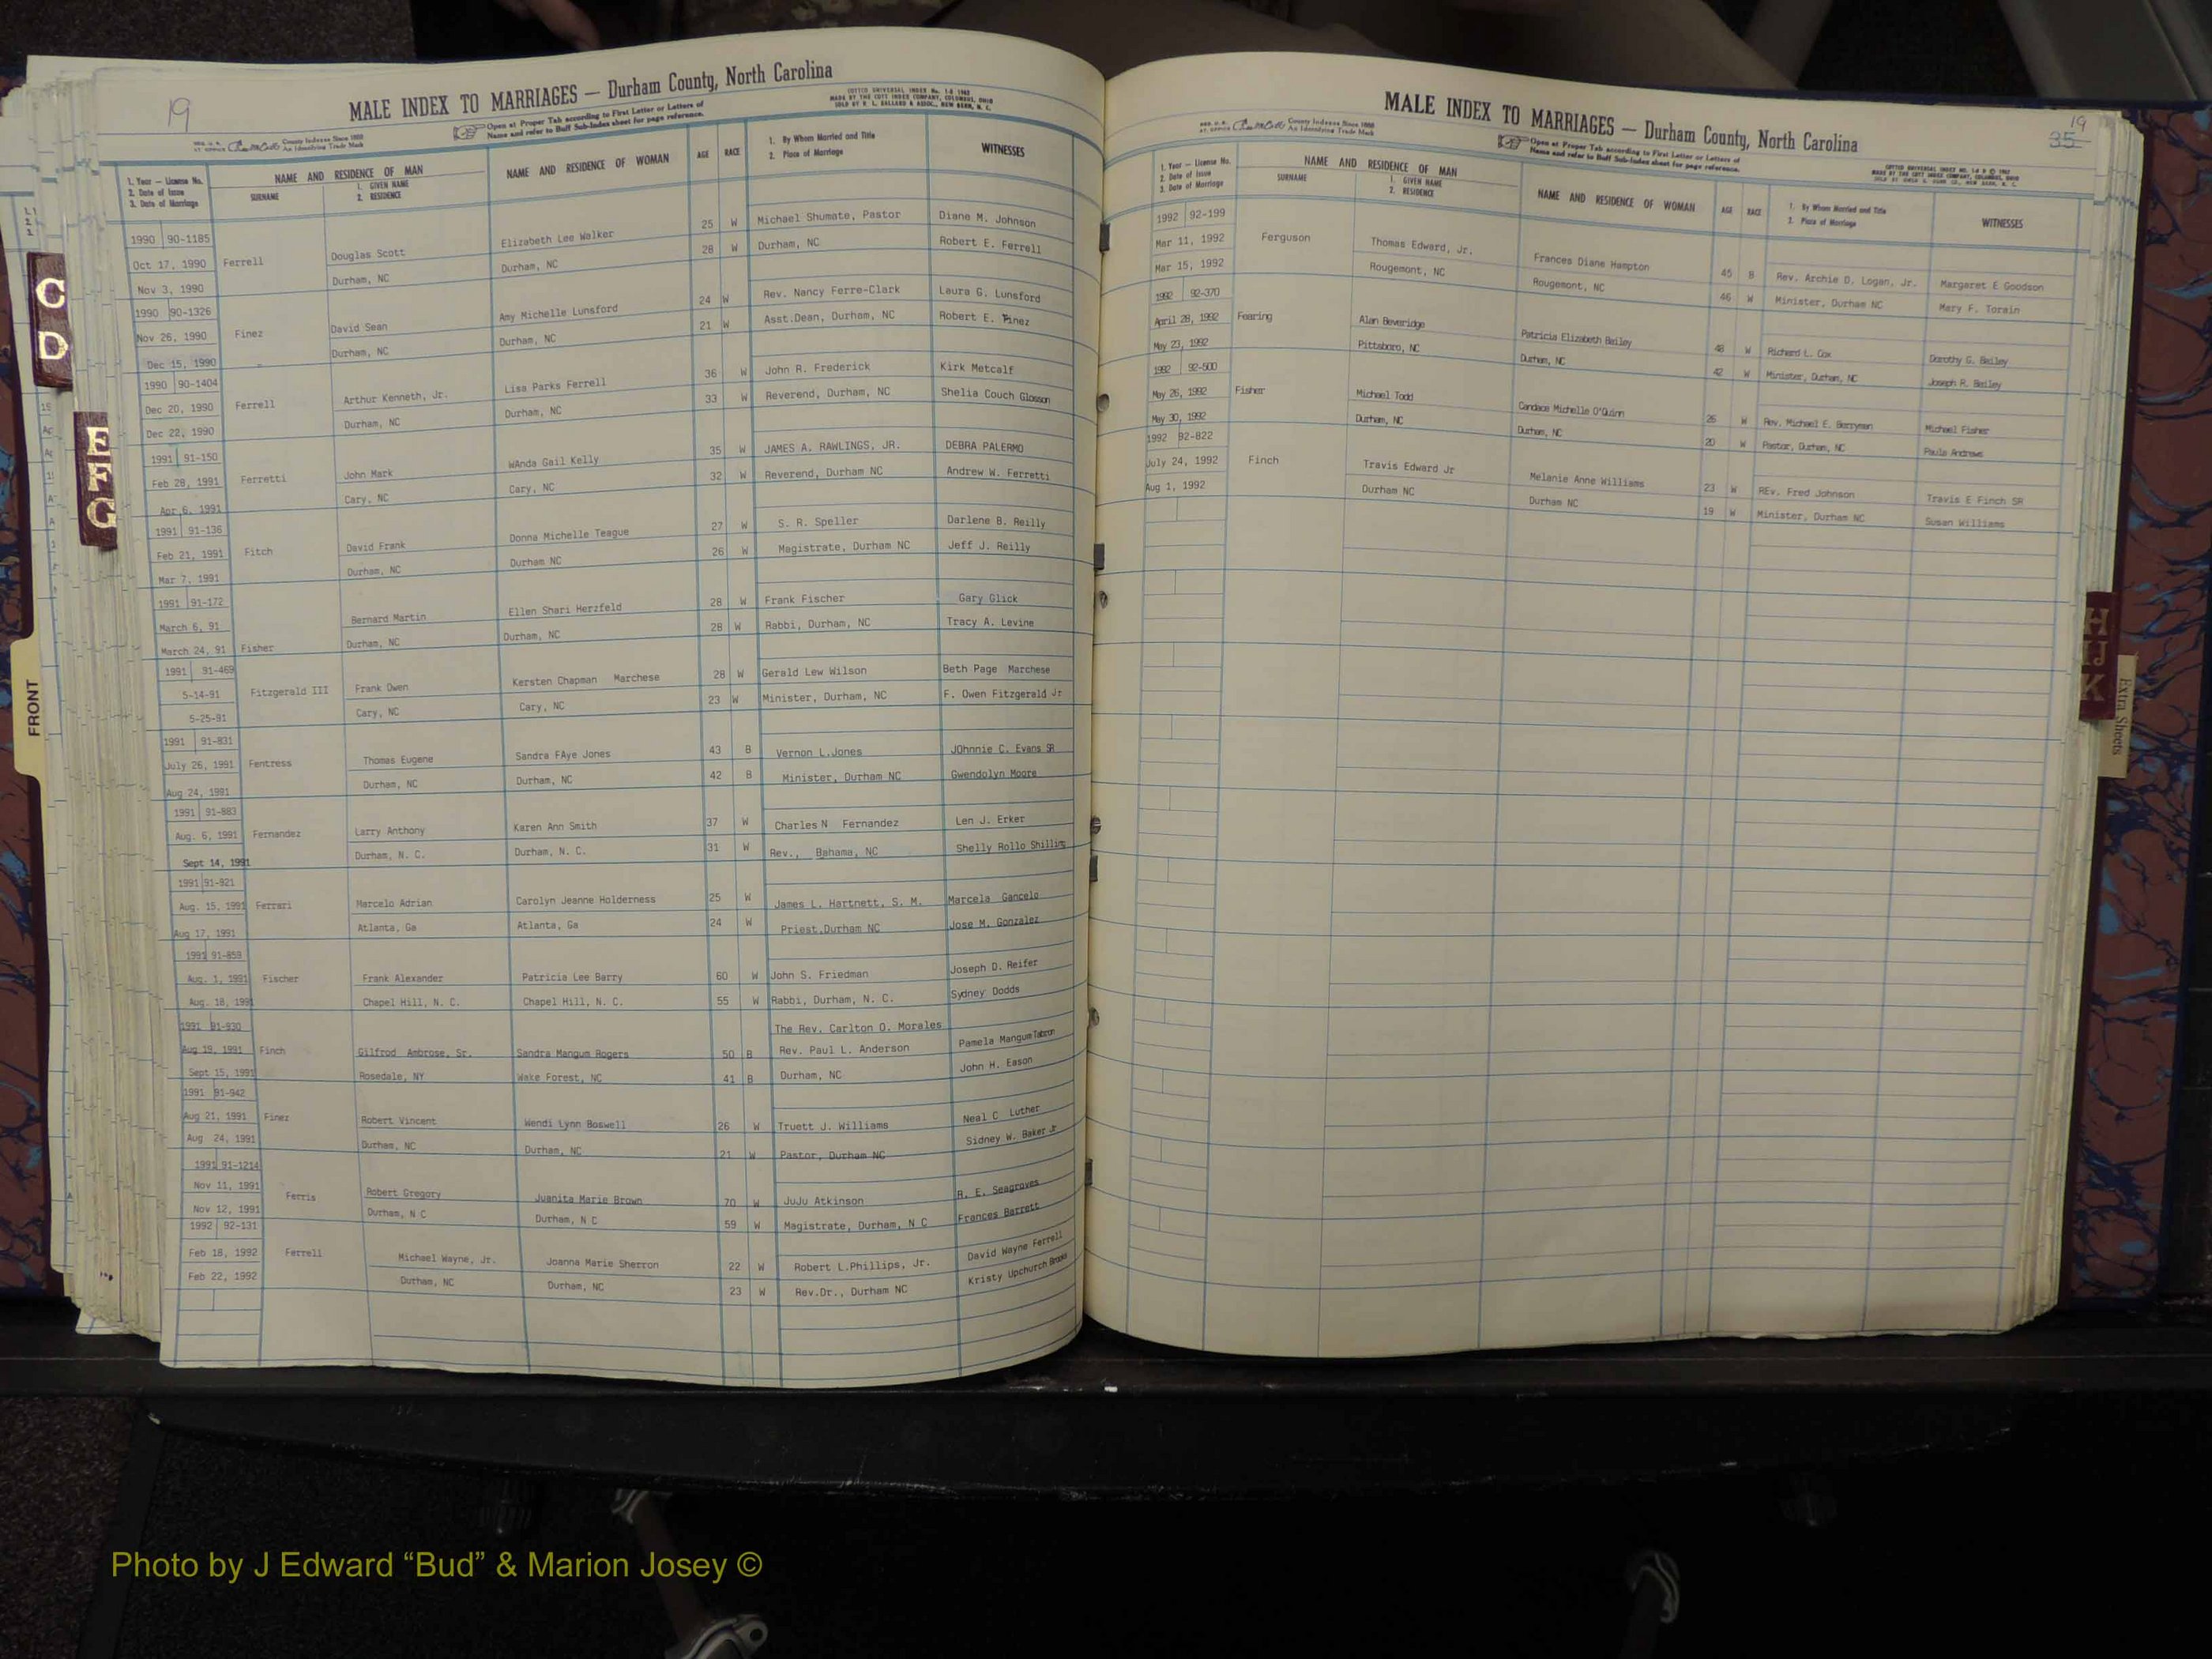 19
MALE INDEX TO MARRIAGES — Durham County, North Carolina
COTT'S UNIVERSAL INDEX No. 1-8 1962
MADE BY THE COTT INDEX COMPANY, COLUMBUS, OHIO
County Indexes Since 1888
An Identifying Trade Mark
Open at Proper Tab according to First Letter or Letters of
Name and refer to Buff Sub-Index sheet for page reference.
1. Year — License No.
2. Date of Issue
3. Date of Marriage
NAME AND RESIDENCE OF MAN
SURNAME
1. GIVEN NAME
2. RESIDENCE
NAME AND RESIDENCE OF WOMAN
AGE
RACE
1. By Whom Married and Title
2. Place of Marriage
WITNESSES
1990 90-1185 Elizabeth Lee Walker 25 W Michael Shumate, Pastor Diane M. Johnson
Oct 17, 1990 Ferrell Douglas Scott Durham, NC 28 W Durham, NC Robert E. Ferrell
Nov 3, 1990 Durham, NC
1990 90-1326 Amy Michelle Lunsford 24 W Rev. Nancy Ferre-Clark Laura G. Lunsford
Nov 26, 1990 Finez David Sean Durham, NC 21 W Asst.Dean, Durham, NC Robert E. Finez
Dec 15, 1990 Durham, NC
1990 90-1404 Lisa Parks Ferrell 36 W John R. Frederick Kirk Metcalf
Dec 20, 1990 Ferrell Arthur Kenneth, Jr. Durham, NC 33 W Reverend, Durham, NC Shelia Couch Glosson
Dec 22, 1990 Durham, NC
1991 91-150 WAnda Gail Kelly 35 W JAMES A. RAWLINGS, JR. DEBRA PALERMO
Feb 28, 1991 Ferretti John Mark Cary, NC 32 W Reverend, Durham NC Andrew W. Ferretti
Apr 6, 1991 Cary, NC
1991 91-136 Donna Michelle Teague 27 W S. R. Speller Darlene B. Reilly
Feb 21, 1991 Fitch David Frank Durham NC 26 W Magistrate, Durham NC Jeff J. Reilly
Mar 7, 1991 Durham, NC
1991 91-172 Bernard Martin Ellen Shari Herzfeld 28 W Frank Fischer Gary Glick
March 6, 91 Durham, NC Durham, NC 28 W Rabbi, Durham, NC Tracy A. Levine
March 24, 91 Fisher
1991 91-469 Kersten Chapman Marchese 28 W Gerald Lew Wilson Beth Page Marchese
5-14-91 Fitzgerald III Frank Owen Cary, NC 23 W Minister, Durham, NC F. Owen Fitzgerald Jr
5-25-91 Cary, NC
1991 91-831 Thomas Eugene Sandra FAye Jones 43 B Vernon L.Jones JOhnnie C. Evans SR
July 26, 1991 Fentress Durham, NC Durham, NC 42 B Minister, Durham NC Gwendolyn Moore
Aug 24, 1991
1991 91-883 Larry Anthony Karen Ann Smith 37 W Charles N Fernandez Len J. Erker
Aug. 6, 1991 Fernandez Durham, N. C. Durham, N. C. 31 W Rev., Bahama, NC Shelly Rollo Shilling
Sept 14, 1991
1991 91-921 Marcelo Adrian Carolyn Jeanne Holderness 25 W James L. Hartnett, S. M. Marcela Gancelo
Aug. 15, 1991 Ferrari Atlanta, Ga Atlanta, Ga 24 W Priest.Durham NC Jose M. Gonzalez
Aug 17, 1991
1991 91-859 Frank Alexander Patricia Lee Barry 60 W John S. Friedman Joseph D. Reifer
Aug. 1, 1991 Fischer Chapel Hill, N. C. Chapel Hill, N. C. 55 W Rabbi, Durham, N. C. Sydney Dodds
Aug. 18, 1991
1991 91-930 The Rev. Carlton O. Morales
Aug 19, 1991 Finch Gilfrod Ambrose, Sr. Sandra Mangum Rogers 50 B Rev. Paul L. Anderson Pamela Mangum Tabron
Sept 15, 1991 Rosedale, NY Wake Forest, NC 41 B Durham, NC John H. Eason
1991 91-942
Aug 21, 1991 Finez Robert Vincent Wendi Lynn Boswell 26 W Truett J. Williams Neal C Luther
Aug 24, 1991 Durham, NC Durham, NC 21 W Pastor, Durham NC Sidney W. Baker Jr
1991 91-1214
Nov 11, 1991 Ferris Robert Gregory Juanita Marie Brown 70 W JuJu Atkinson R. E. Seagroves
Nov 12, 1991 Durham, N C Durham, N C 59 W Magistrate, Durham, N C Frances Barrett
1992 92-131
Feb 18, 1992 Ferrell Michael Wayne, Jr. Joanna Marie Sherron 22 W Robert L.Phillips, Jr. David Wayne Ferrell
Feb 22, 1992 Durham, NC Durham, NC 23 W Rev.Dr., Durham NC Kristy Upchurch Brooks
19
35
MALE INDEX TO MARRIAGES — Durham County, North Carolina
County Indexes Since 1888
An Identifying Trade Mark
Open at Proper Tab according to First Letter or Letters of
Name and refer to Buff Sub-Index sheet for page reference.
1. Year — License No.
2. Date of Issue
3. Date of Marriage
NAME AND RESIDENCE OF MAN
SURNAME
1. GIVEN NAME
2. RESIDENCE
NAME AND RESIDENCE OF WOMAN
AGE
RACE
1. By Whom Married and Title
2. Place of Marriage
WITNESSES
1992 92-199
Mar 11, 1992 Ferguson Thomas Edward, Jr. Frances Diane Hampton 45 B Rev. Archie D. Logan, Jr. Margaret E Goodson
Mar 15, 1992 Rougemont, NC Rougemont, NC 46 W Minister, Durham NC Mary F. Torain
1992 92-370
April 28, 1992 Fearing Alan Beveridge Patricia Elizabeth Bailey 48 W Richard L. Cox Dorothy G. Bailey
May 23, 1992 Pittsboro, NC Durham, NC 42 W Minister, Durham, NC Joseph R. Bailey
1992 92-500
May 26, 1992 Fisher Michael Todd Candace Michelle O'Quinn 26 W Rev. Michael E. Berryman Michael Fisher
May 30, 1992 Durham, NC Durham, NC 20 W Pastor, Durham, NC Paula Andrews
1992 92-822
July 24, 1992 Finch Travis Edward Jr Melanie Anne Williams 23 W REv. Fred Johnson Travis E Finch SR
Aug 1, 1992 Durham NC Durham NC 19 W Minister, Durham NC Susan Williams
C
D
E
F
G
FRONT
H
IJ
K
Extra Sheets
Photo by J Edward “Bud” & Marion Josey ©